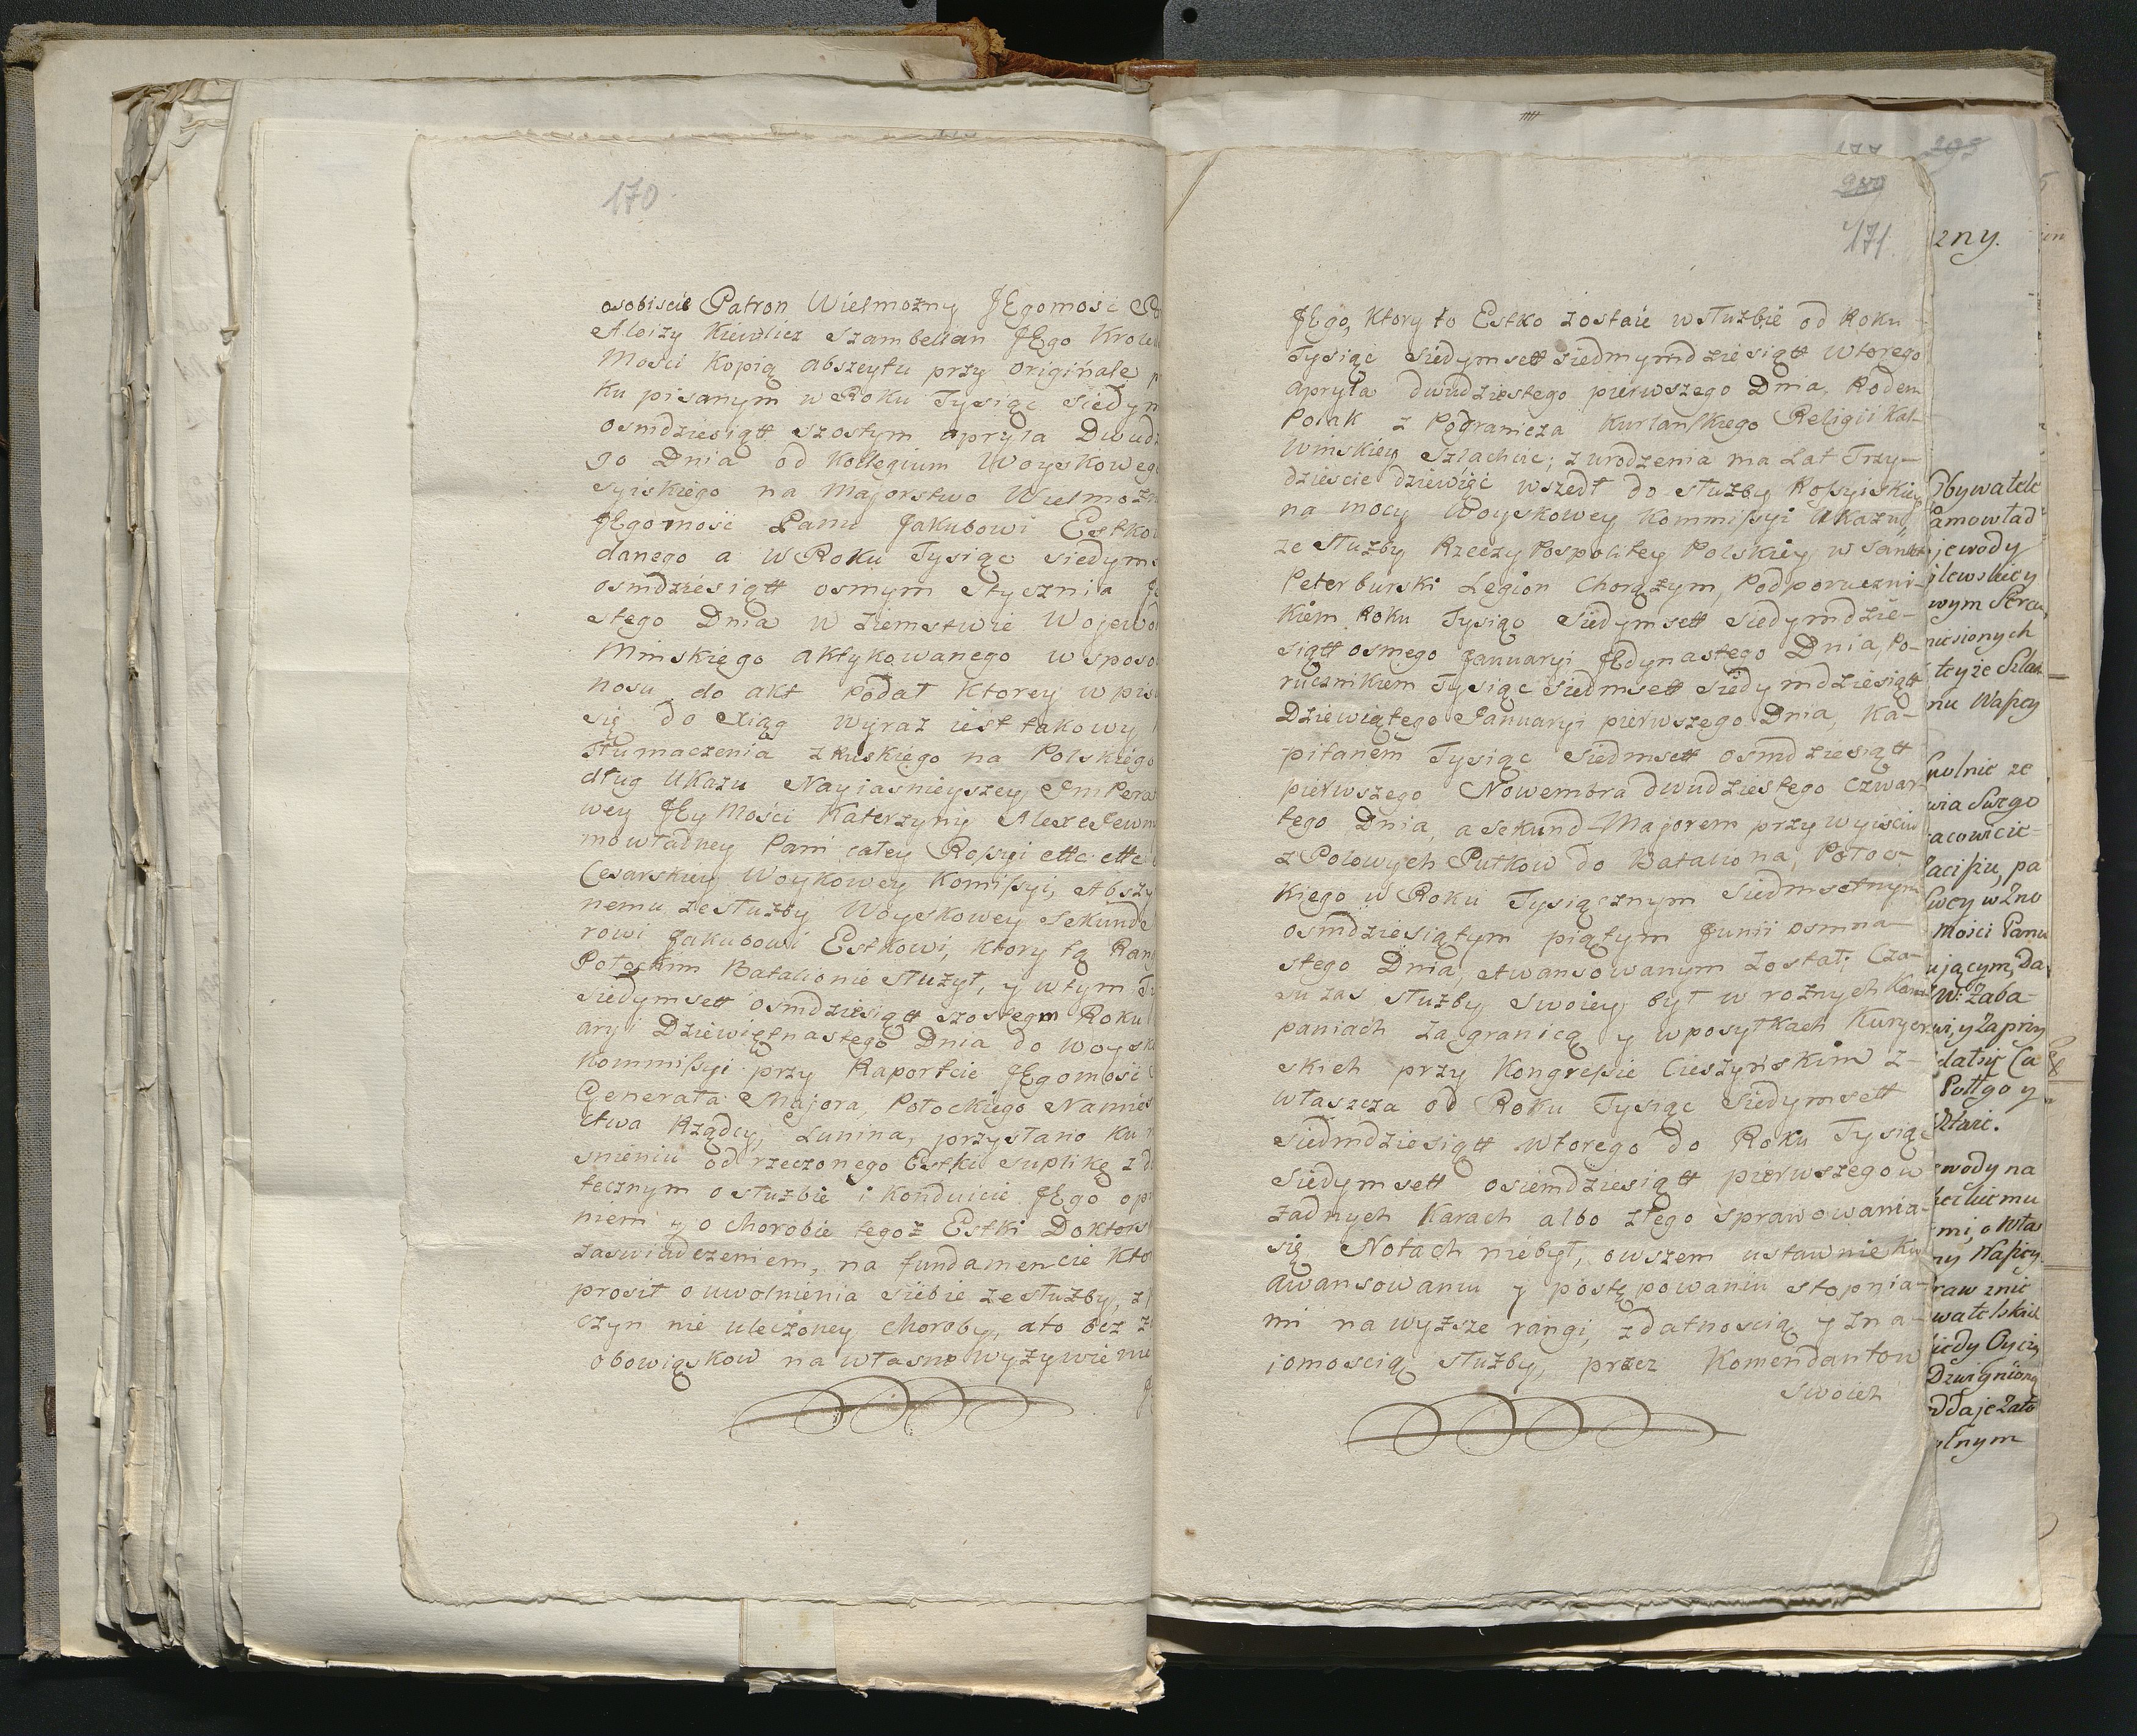 170
osobiscie Patron Wielmozny JEgomość
Aloizy Kiewlicz Szambelian JEgo
Mosci Kopią abszeytu przy originale
ku pisanym w Roku Tysiąc
osmdziesiątt szostym apryla
go Dnia od Kollegium
syiskiego na Majorstwo
JEgomość Panu Jakubowi
danego a w Roku Tysiąc
osmdziesiątt osmym Stycznia
stego Dnia w Ziemstwie
Minskiego aktykowanego w
nosu do akt podał Ktorey
się do xiąg wyraz iest takowy
Tłumaczenia z Ruskiego na Polskiego
dług Ukazu Nayiasnieyszey
wey JEy Mości Katerzyny
mowładney Pani całey Rossyi ettc ettc
Cesarskiey Woykowey Komissyi,
nemu ze służby Woyskowey
rowi Jakubowi Estkowi, Ktory tą
Potockim Batalionie służył, y w tym
siedymsett osmdziesiątt szostegm Roku
aryi Dziewiętnastego Dnia do
Kommissyi przy Raportcie JEgomosi
Generała Majora, Potockiego
ctwa Rządcy, Lunina, przysłano ku
snieniu od rzeczonego Estki suplikę z
tecznym o służbie i Konduicie JEgo
niem y o Chorobie tegoż Estki
zaswiadczeniem, na fundamencie
prosił o uwolnienia siebie ze służby,
czyn nie uleczoney choroby, ato bez
obowiąskow na własne
177
171
JEgo, Ktory to Estko zostaie w służbie od Roku
Tysiąc siedymsett siedmymdziesiątt wtorego
apryla dwudziestego pierwszego Dnia, Rodem
Polak z Pogranicza Kurlanskiego Religii Kal-
winskiey Szlachcic; z urodzenia ma Lat Trzy-
dziescie dziewięć wszedł do służby Rossyiskiey
na mocy Woyskowey Kommissyi Ukazu,
ze służby Rzeczy Pospolitey Polskiey w
Peterburski Legion Chorążym, Podporuczni-
kiem Roku Tysiąc Siedymsett Siedymdzie-
siątt osmego Januaryi JEdynastego Dnia, Po-
rucznikiem Tysiąc Siedmsett siedymdziesiątt
Dziewiątego Januaryi pierwszego Dnia, Ka-
pitanem Tysiąc Siedmsett osmdziesiątt
pierwszego Nowembra dwudziestego czwar-
tego Dnia, a sekund-Majorem przy wyisciu
z Polowych Pułkow do Bataliona, Potoc-
kiego w Roku Tysiącznym Siedmsetnym
osmdziesiątym piątym Junii osmna-
stego Dnia, Awansowanym został; Cza-
su zas służby swoiey był w rożnych Kam
paniach za granicą y w posyłkach Kuryer
skich przy Kongressie Cieszyńskim z-
właszcza od Roku Tysiąc Siedymsett
siedmdziesiątt wtorego do Roku Tysiąc
Siedymsett osiemdziesiątt pierwszego w
żadnych Karach albo złego sprawowania-
się Notach niebył, owszem ustawnie
awansowaniu y postępowaniu stopnia-
mi na wyższe rangi, zdatnoscią y zna-
iomoscią służby, przez Komendantow
Swoich
zny.
Obywatele
jewody
wym
niesionych
tey że
nu Wasży
wia Swego
Mości Panu
ującym, Da
W: Zaba-
wody na
mi, o
Dzwignioną
ddaje
lnym